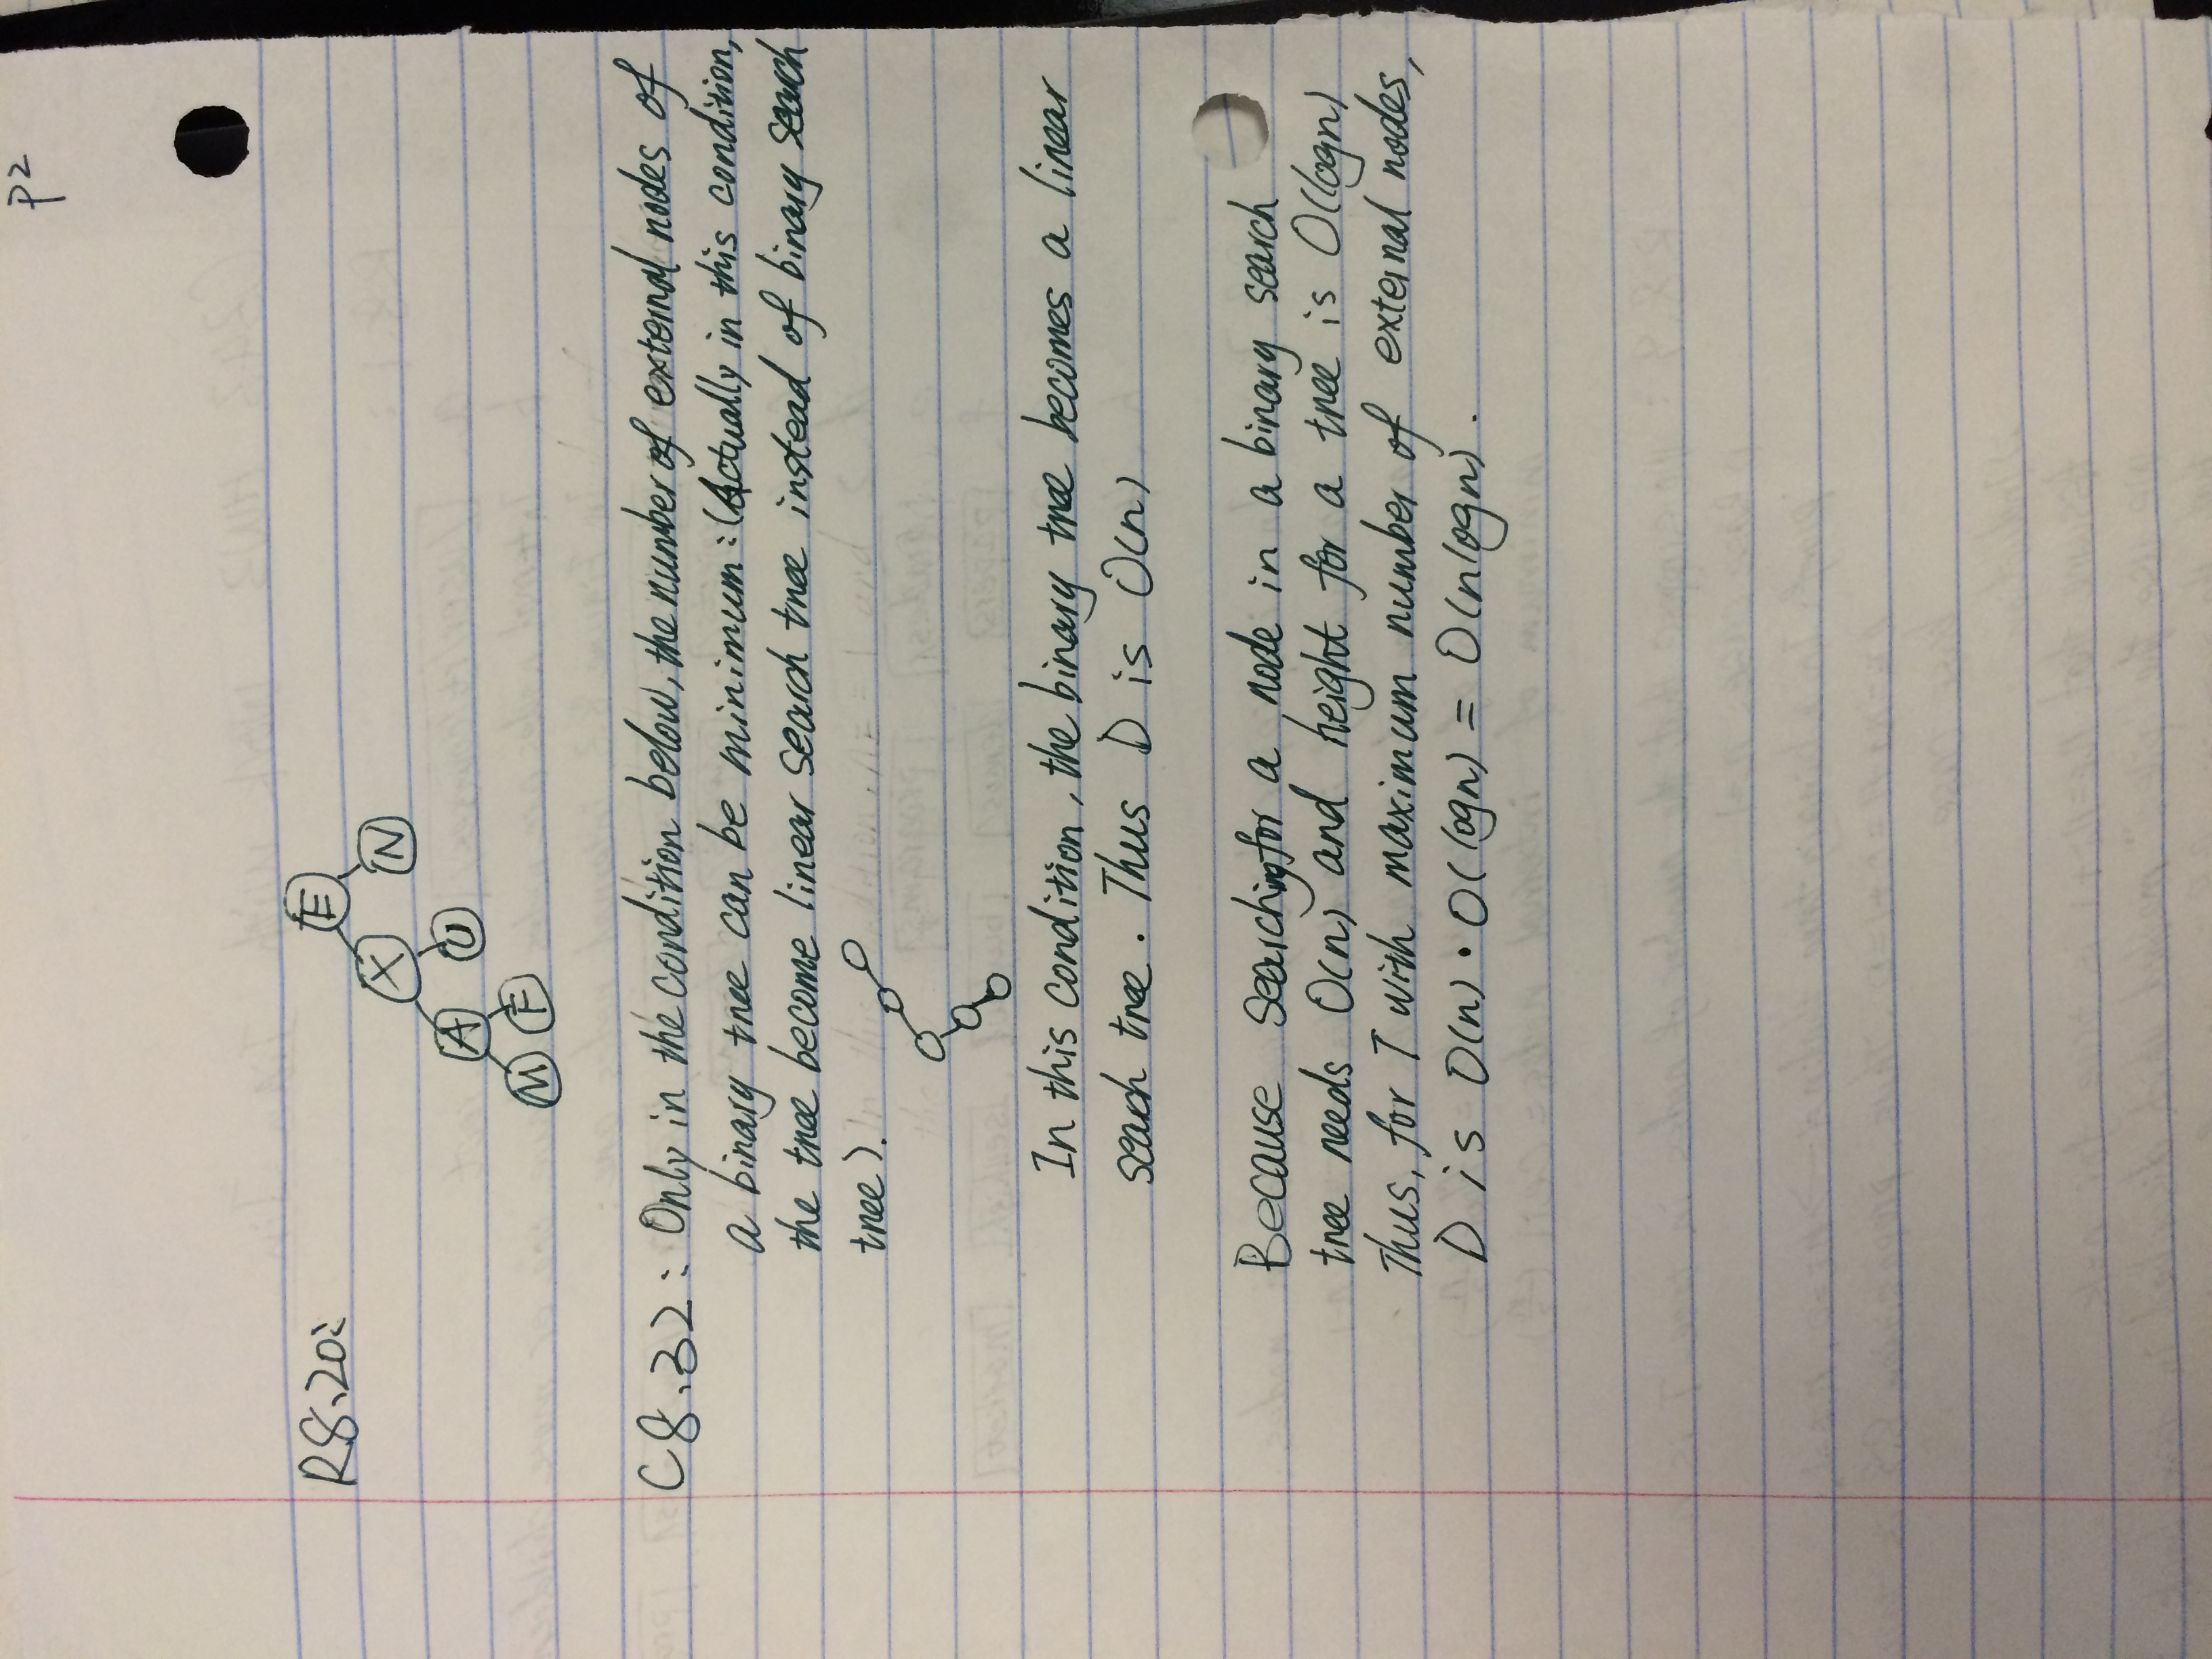 P2
R8.20:
E
X N
A U
M F
C8.32: Only in the condition below, the number of external nodes of
a binary tree can be minimum: (Actually in this condition,
the tree become linear search tree instead of binary search
tree).
In this condition, the binary tree becomes a linear
search tree. Thus D is O(n)
Because searching for a node in a binary search
tree needs O(n) and height for a tree is O(logn)
Thus, for T with maximum number of external nodes,
D is O(n) · O(logn) = O(nlogn).